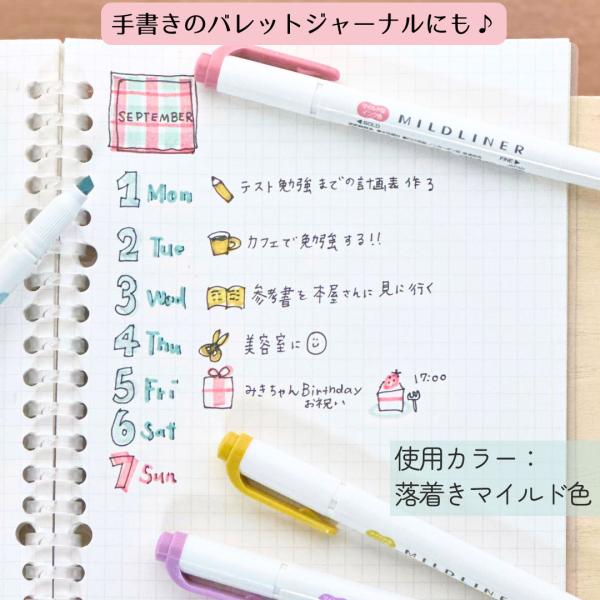 手書きのバレットジャーナルにも♪
SEPTEMBER
マイルド
MILDLINER
◀BOLD
FINE▶
1 Mon テスト勉強までの計画表作る
2 Tue カフェで勉強する!!
3 Wed 参考書を本屋さんに見に行く
4 Thu 美容室に
5 Fri みきちゃんBirthday
お祝い
17:00
6 Sat
7 Sun
使用カラー：
落着きマイルド色
MILDLINER
MILDLINER